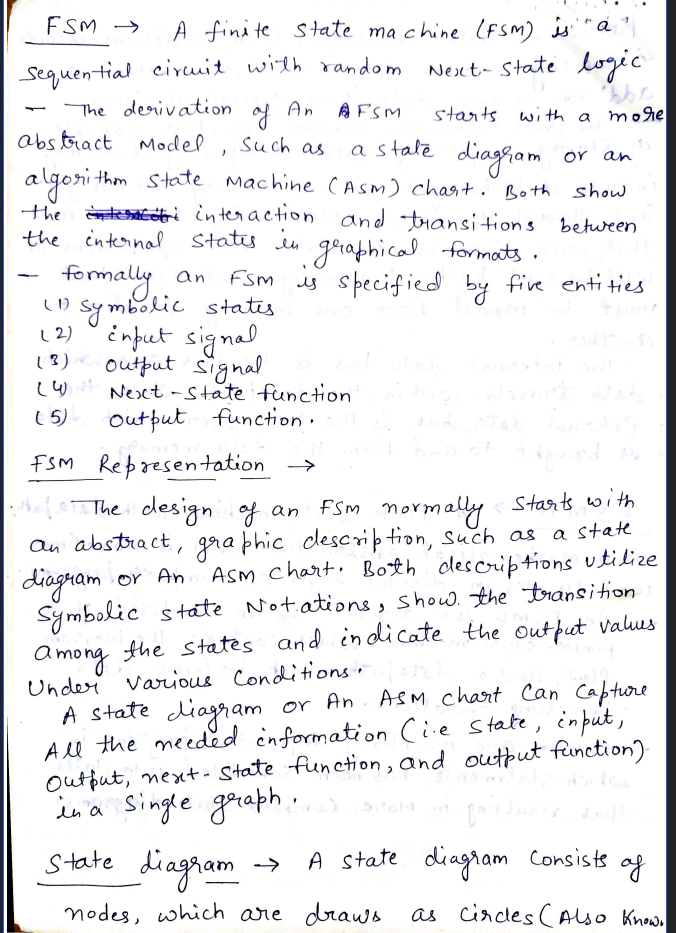 FSM → A finite state machine (FSM) is "a"
sequential circuit with random Next-State logic
- The derivation of An FSM starts with a more
abstract Model, Such as a state diagram or an
algorithm State Machine (ASM) chart. Both show
the interaction and transitions between
the internal States in graphical formats.
- formally an FSM is specified by five entities
(1) symbolic states
(2) input signal
(3) output signal
(4) Next-State function
(5) output function.
FSM Representation →
The design of an FSM normally starts with
an abstract, graphic description, Such as a state
diagram or An ASM chart. Both descriptions utilize
Symbolic state Notations, show. the transition
among the states and indicate the output values
Under various Conditions.
A state diagram or An ASM chart Can Capture
All the needed information (i.e state, input,
output, next-State function, and output function)
in a single graph.
State diagram → A state diagram Consists of
nodes, which are draws as circles (Also Know.